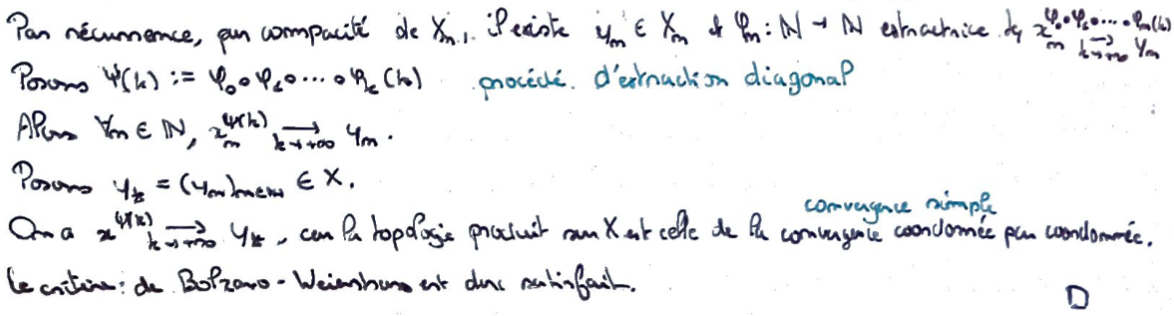 Par récurrence, par compacité de Xₘ, il existe yₘ ∈ Xₘ & φₘ : ℕ → ℕ extractrice tq xₘ^{φ₀∘φ₁∘⋯∘φₘ(k)} ⟶_{k→+∞} yₘ
Posons ψ(k) := φ₀∘φ₁∘⋯∘φₖ(k) procédé d'extraction diagonal
Alors ∀m ∈ ℕ, xₘ^{ψ(k)} ⟶_{k→+∞} yₘ.
Posons y_* = (yₘ)_{m∈ℕ} ∈ X.
On a x^{ψ(k)} ⟶_{k→+∞} y_*, car la topologie produit sur X est celle de la convergence coordonnée par coordonnée.
convergence simple
Le critère de Bolzano-Weierstrass est donc satisfait. □